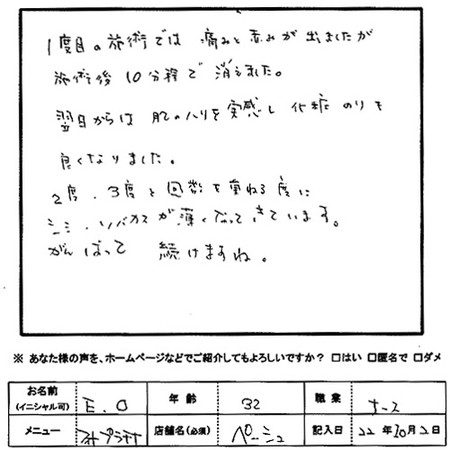 1度目の施術では 痛みと赤みが出ましたが
施術後10分程で消えました。
翌日からは 肌のハリを実感し 化粧のりも
良くなりました。
2度、3度と回数を重ねる度に
シミ・ソバカスが薄くなってきています。
がんばって 続けますね。
※ あなた様の声を、ホームページなどでご紹介してもよろしいですか？ □はい □匿名で □ダメ
お名前（イニシャル可） E.O 年齢 32 職業 ナース
メニュー フォトプラチナ 店舗名（必須） ペーシュ 記入日 22年10月2日